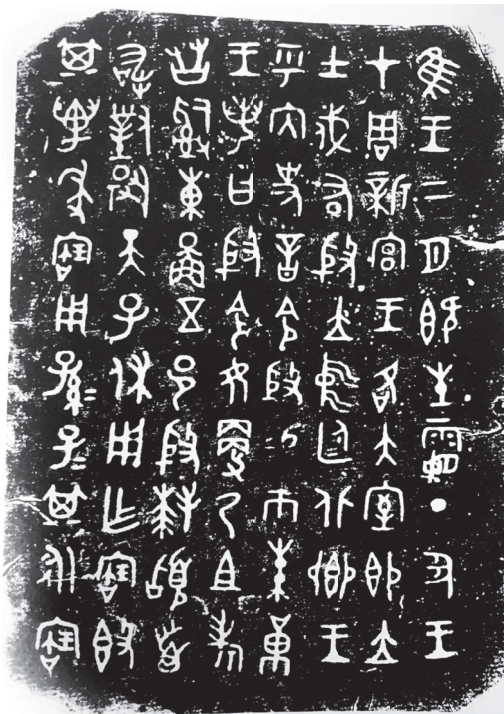 隹王二月既生霸丁丑王
才周新宮王各大室即立
士戍右殷立中廷北鄉王
乎內史音令殷易巿朱黃
王若曰殷令女更乃且考
友𤔲東啚五邑殷拜𩒨首
敢對揚天子休用乍寶簋
其萬年寶用孫=子=其永寶